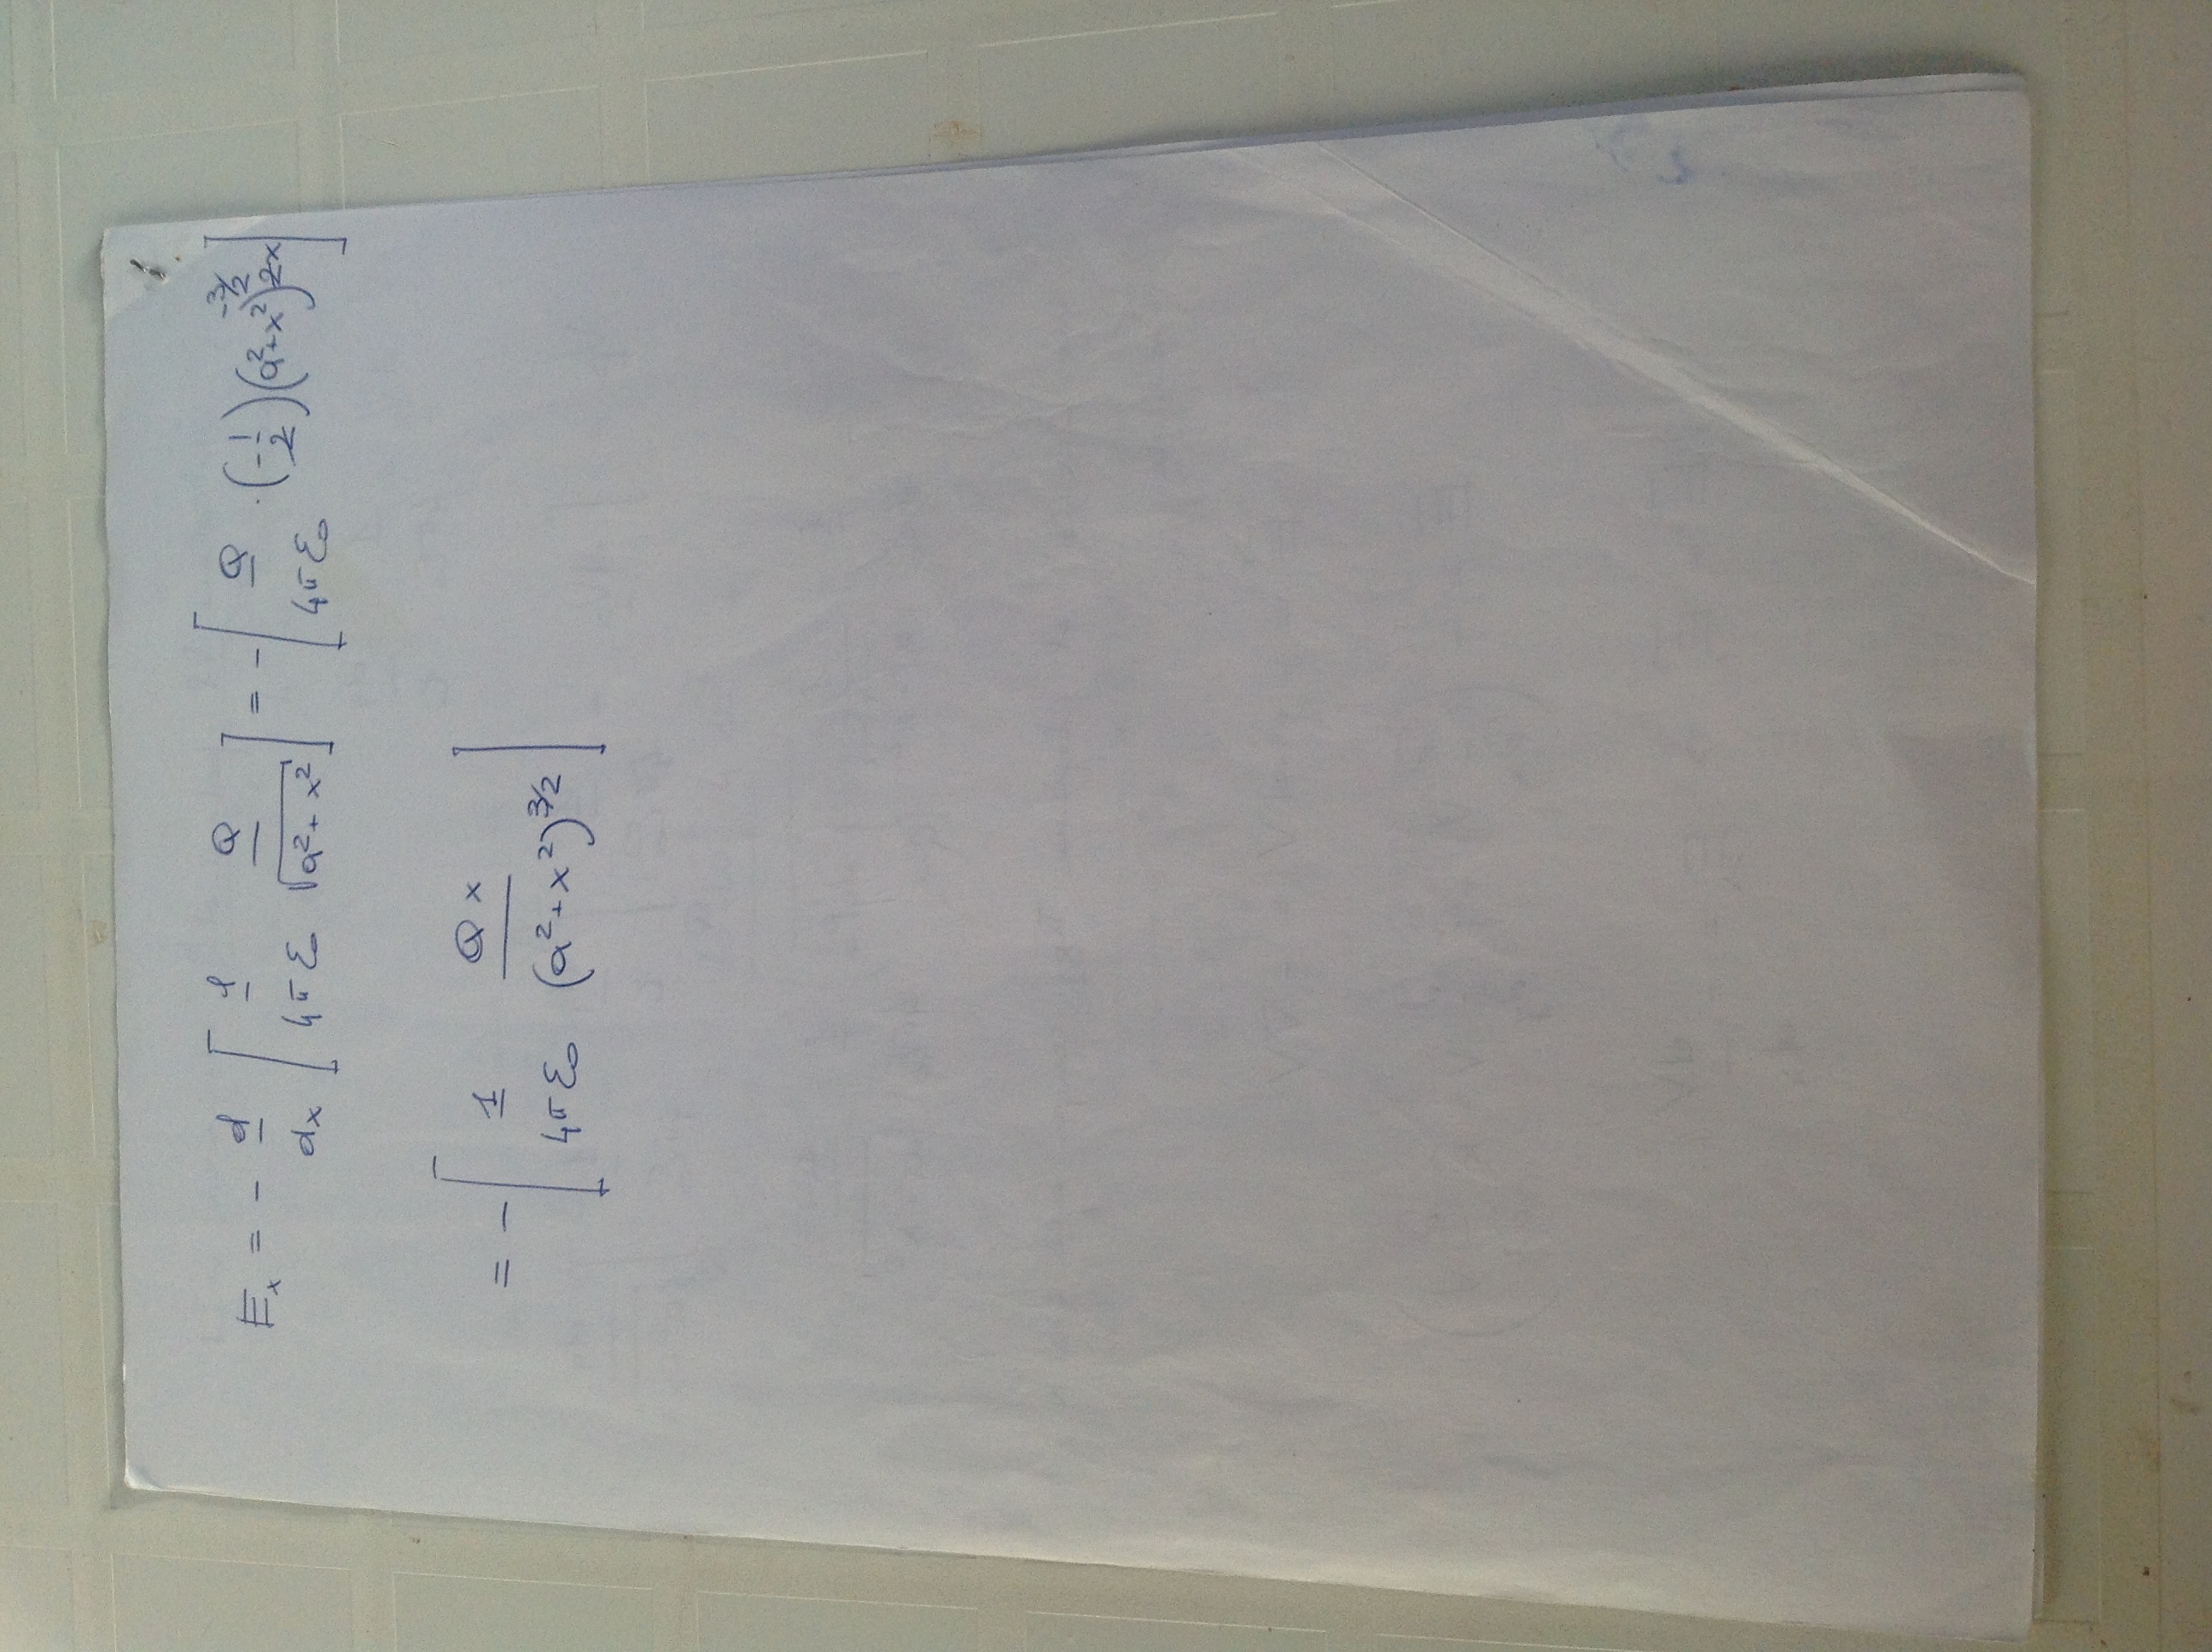 E_x = - d/dx [ 1/4πε₀ Q/√(a²+x²) ] = - [ Q/4πε₀ · (-1/2)(a²+x²)^(-3/2) 2x ]
= - [ 1/4πε₀ Qx/(a²+x²)^(3/2) ]